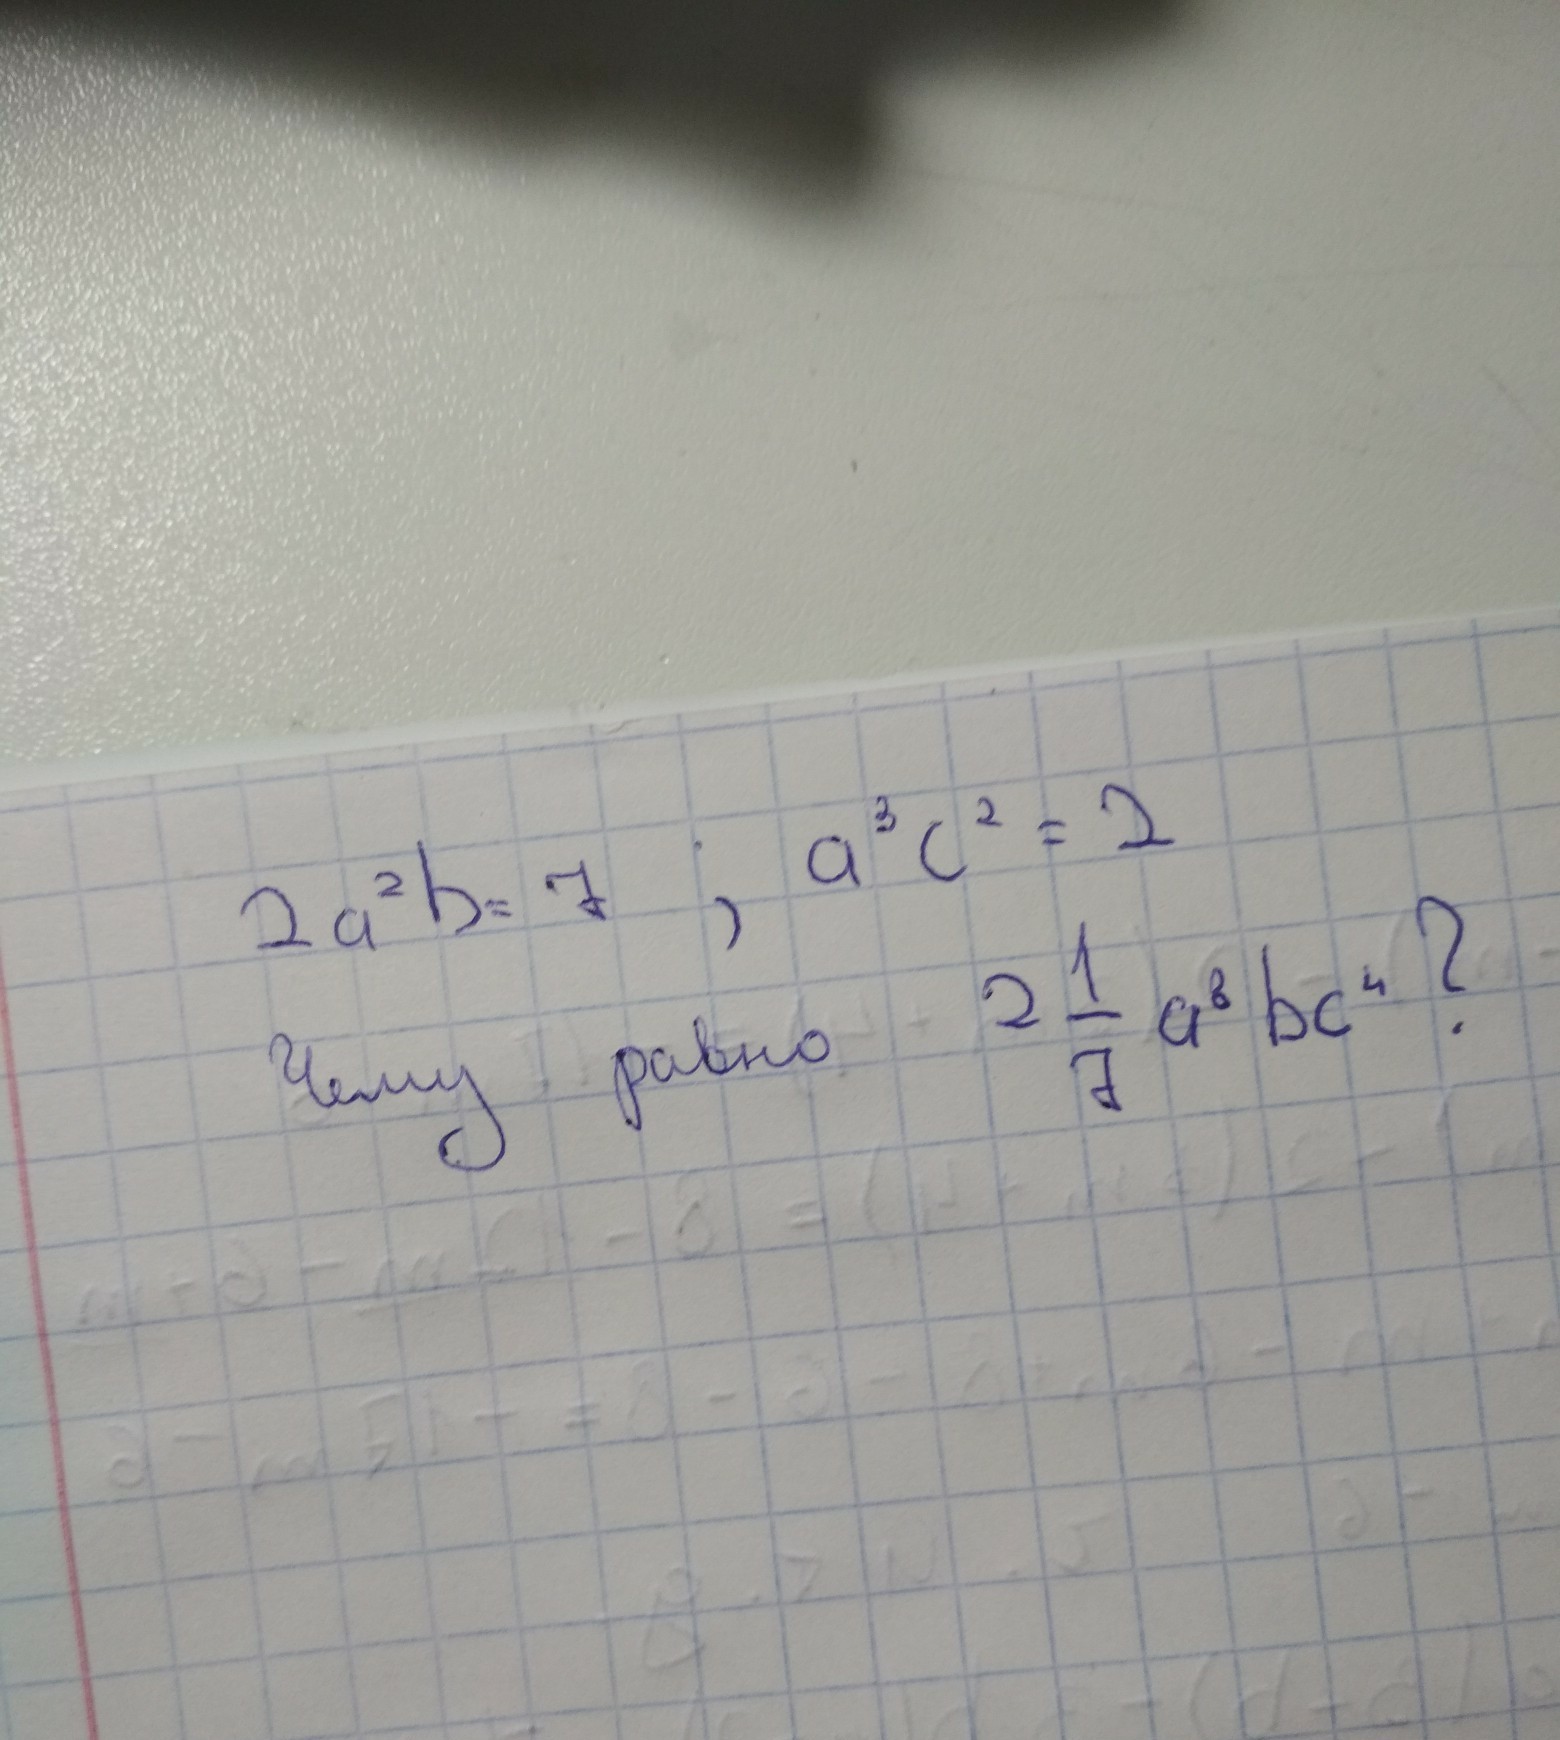 2a²b = 7 ; a³c² = 2
Чему равно 2 1/7 a⁸bc⁴?